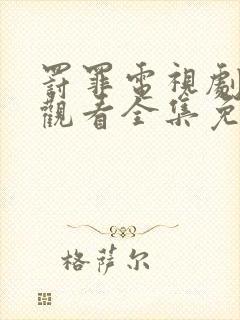 罸罪電視劇
觀看全集免
格萨尔